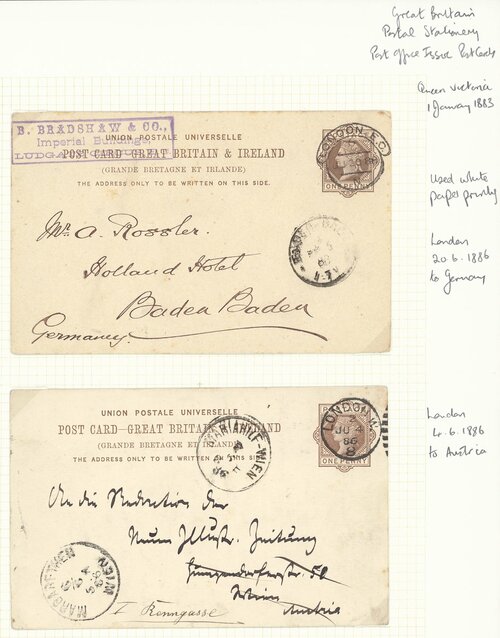 Great Britain
Postal Stationery
Post Office Issue Post Cards
Queen Victoria
1 January 1883
B. BRADSHAW & CO.,
Imperial Buildings,
LUDGATE
UNION POSTALE UNIVERSELLE
POST CARD-GREAT BRITAIN & IRELAND
(GRANDE BRETAGNE ET IRLANDE)
THE ADDRESS ONLY TO BE WRITTEN ON THIS SIDE.
LONDON E.C
ONE PENNY
Used white
paper
London
20.6.1886
to Germany
Mr. A. Rossler.
Holland Hotel
Baden Baden
Germany
UNION POSTALE UNIVERSELLE
POST CARD-GREAT BRITAIN
(GRANDE BRETAGNE ET IRLANDE)
THE ADDRESS ONLY TO BE WRITTEN ON THIS SIDE.
LONDON.W
JU 4
86
8
ONE PENNY
MARIAHILF-WIEN
London
4.6.1886
to Austria
An die Redaction der
Neuen Illustr. Zeitung
Gumpendorferstr. 50
Wien
Austria
I Renngasse
MARGARETHEN
WIEN